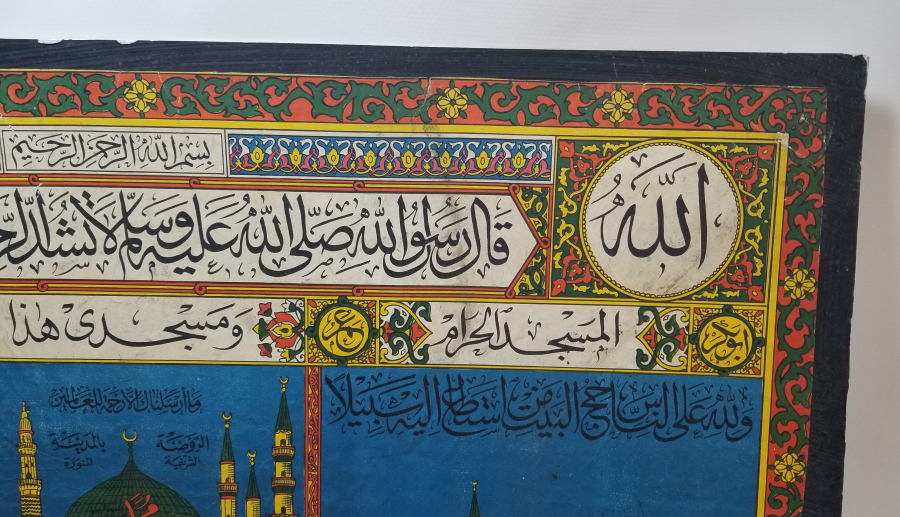 بسم الله الرحمن الرحيم
الله
قال رسول الله صلى الله عليه وسلم لا تشد
ابوبكر
المسجد الحرام
عمر
ومسجدى هذا
ولله على الناس حج البيت من استطاع اليه سبيلا
وما ارسلناك الا رحمة للعالمين
الروضة الشريفة
بالمدينة المنورة